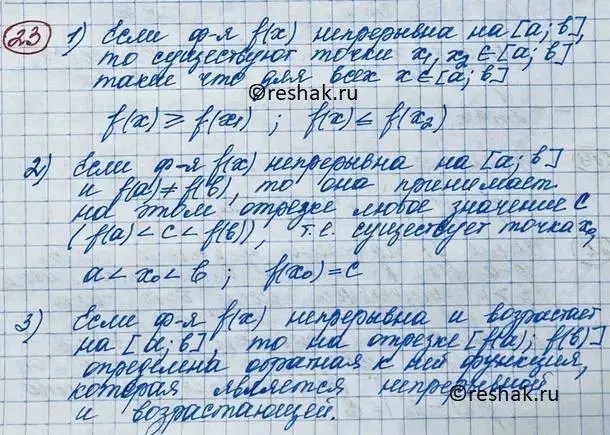 23 1) Если ф-я f(x) непрерывна на [a; b],
то существуют точки x₁, x₂ ∈ [a; b]
такие что для всех x ∈ [a; b]
©reshak.ru
f(x) ≥ f(x₁) ; f(x) ≤ f(x₂)
2) Если ф-я f(x) непрерывна на [a; b]
и f(a) ≠ f(b), то она принимает
на этом отрезке любое значение C
(f(a) < c < f(b)), т.е. существует точка x₀,
a < x₀ < b ; f(x₀) = C
3) Если ф-я f(x) непрерывна и возрастает
на [a; b], то на отрезке [f(a); f(b)]
определена обратная к ней функция,
которая является непрерывной
©reshak.ru
и возрастающей.